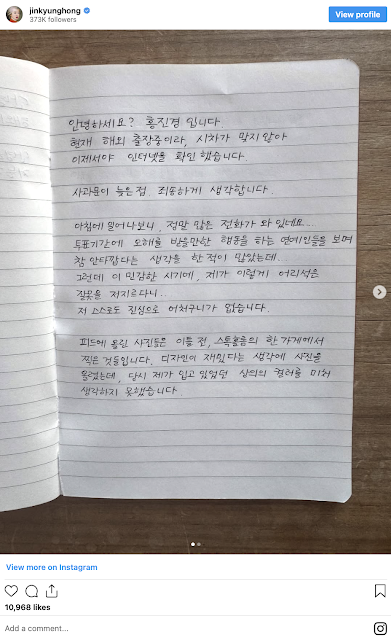 jinkyunghong
373K followers
View profile
안녕하세요? 홍진경 입니다
현재 해외 출장중이라, 시차가 맞지 않아
이제서야 인터넷을 확인 했습니다.
사과문이 늦은점 죄송하게 생각합니다.
아침에 일어나보니, 정말 많은 전화가 와 있네요..
투표기간에 오해를 받을만한 행동을 하는 연예인들을 보며
참 안타깝다는 생각을 한 적이 많았는데..
그런데 이 민감한 시기에, 제가 이렇게 어리석은
잘못을 저지르다니..
저 스스로도 진심으로 어처구니가 없습니다.
피드에 올린 사진들은 이틀 전, 스톡홀름의 한 가게에서
찍은 것들입니다. 디자인이 재밌다는 생각에 사진을
올렸는데, 당시 제가 입고 있었던 상의의 컬러를 미처
생각하지 못했습니다
View more on Instagram
10,968 likes
Add a comment...